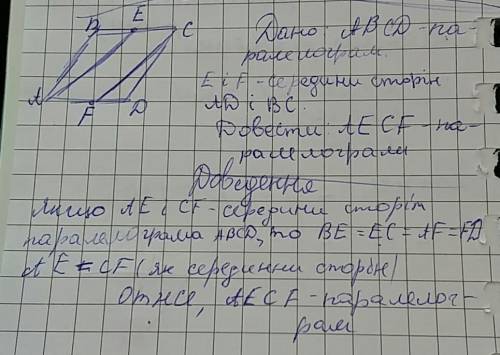 B E C
A F D
Дано: ABCD - па-
ралелограм.
E і F - середини сторін
AD і BC.
Довести: AECF - па-
ралелограм
Доведення
Якщо AE і CF - середини сторін
паралелограма ABCD, то BE = EC = AF = FD
AE = CF (як серединни сторін)
Отже, AECF - паралелог-
рам